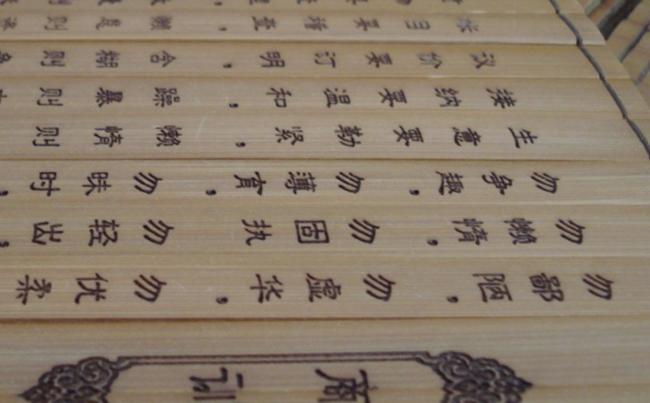 商训
勿鄙陋，勿虚华，勿优柔
勿懒惰，勿固执，勿轻齿，
勿争趣，勿薄育，勿昧时，
生意要勤紧，懒惰则
接纳要温和，躁暴则
议价要订明，含糊则
帐目要稽查，懒怠则